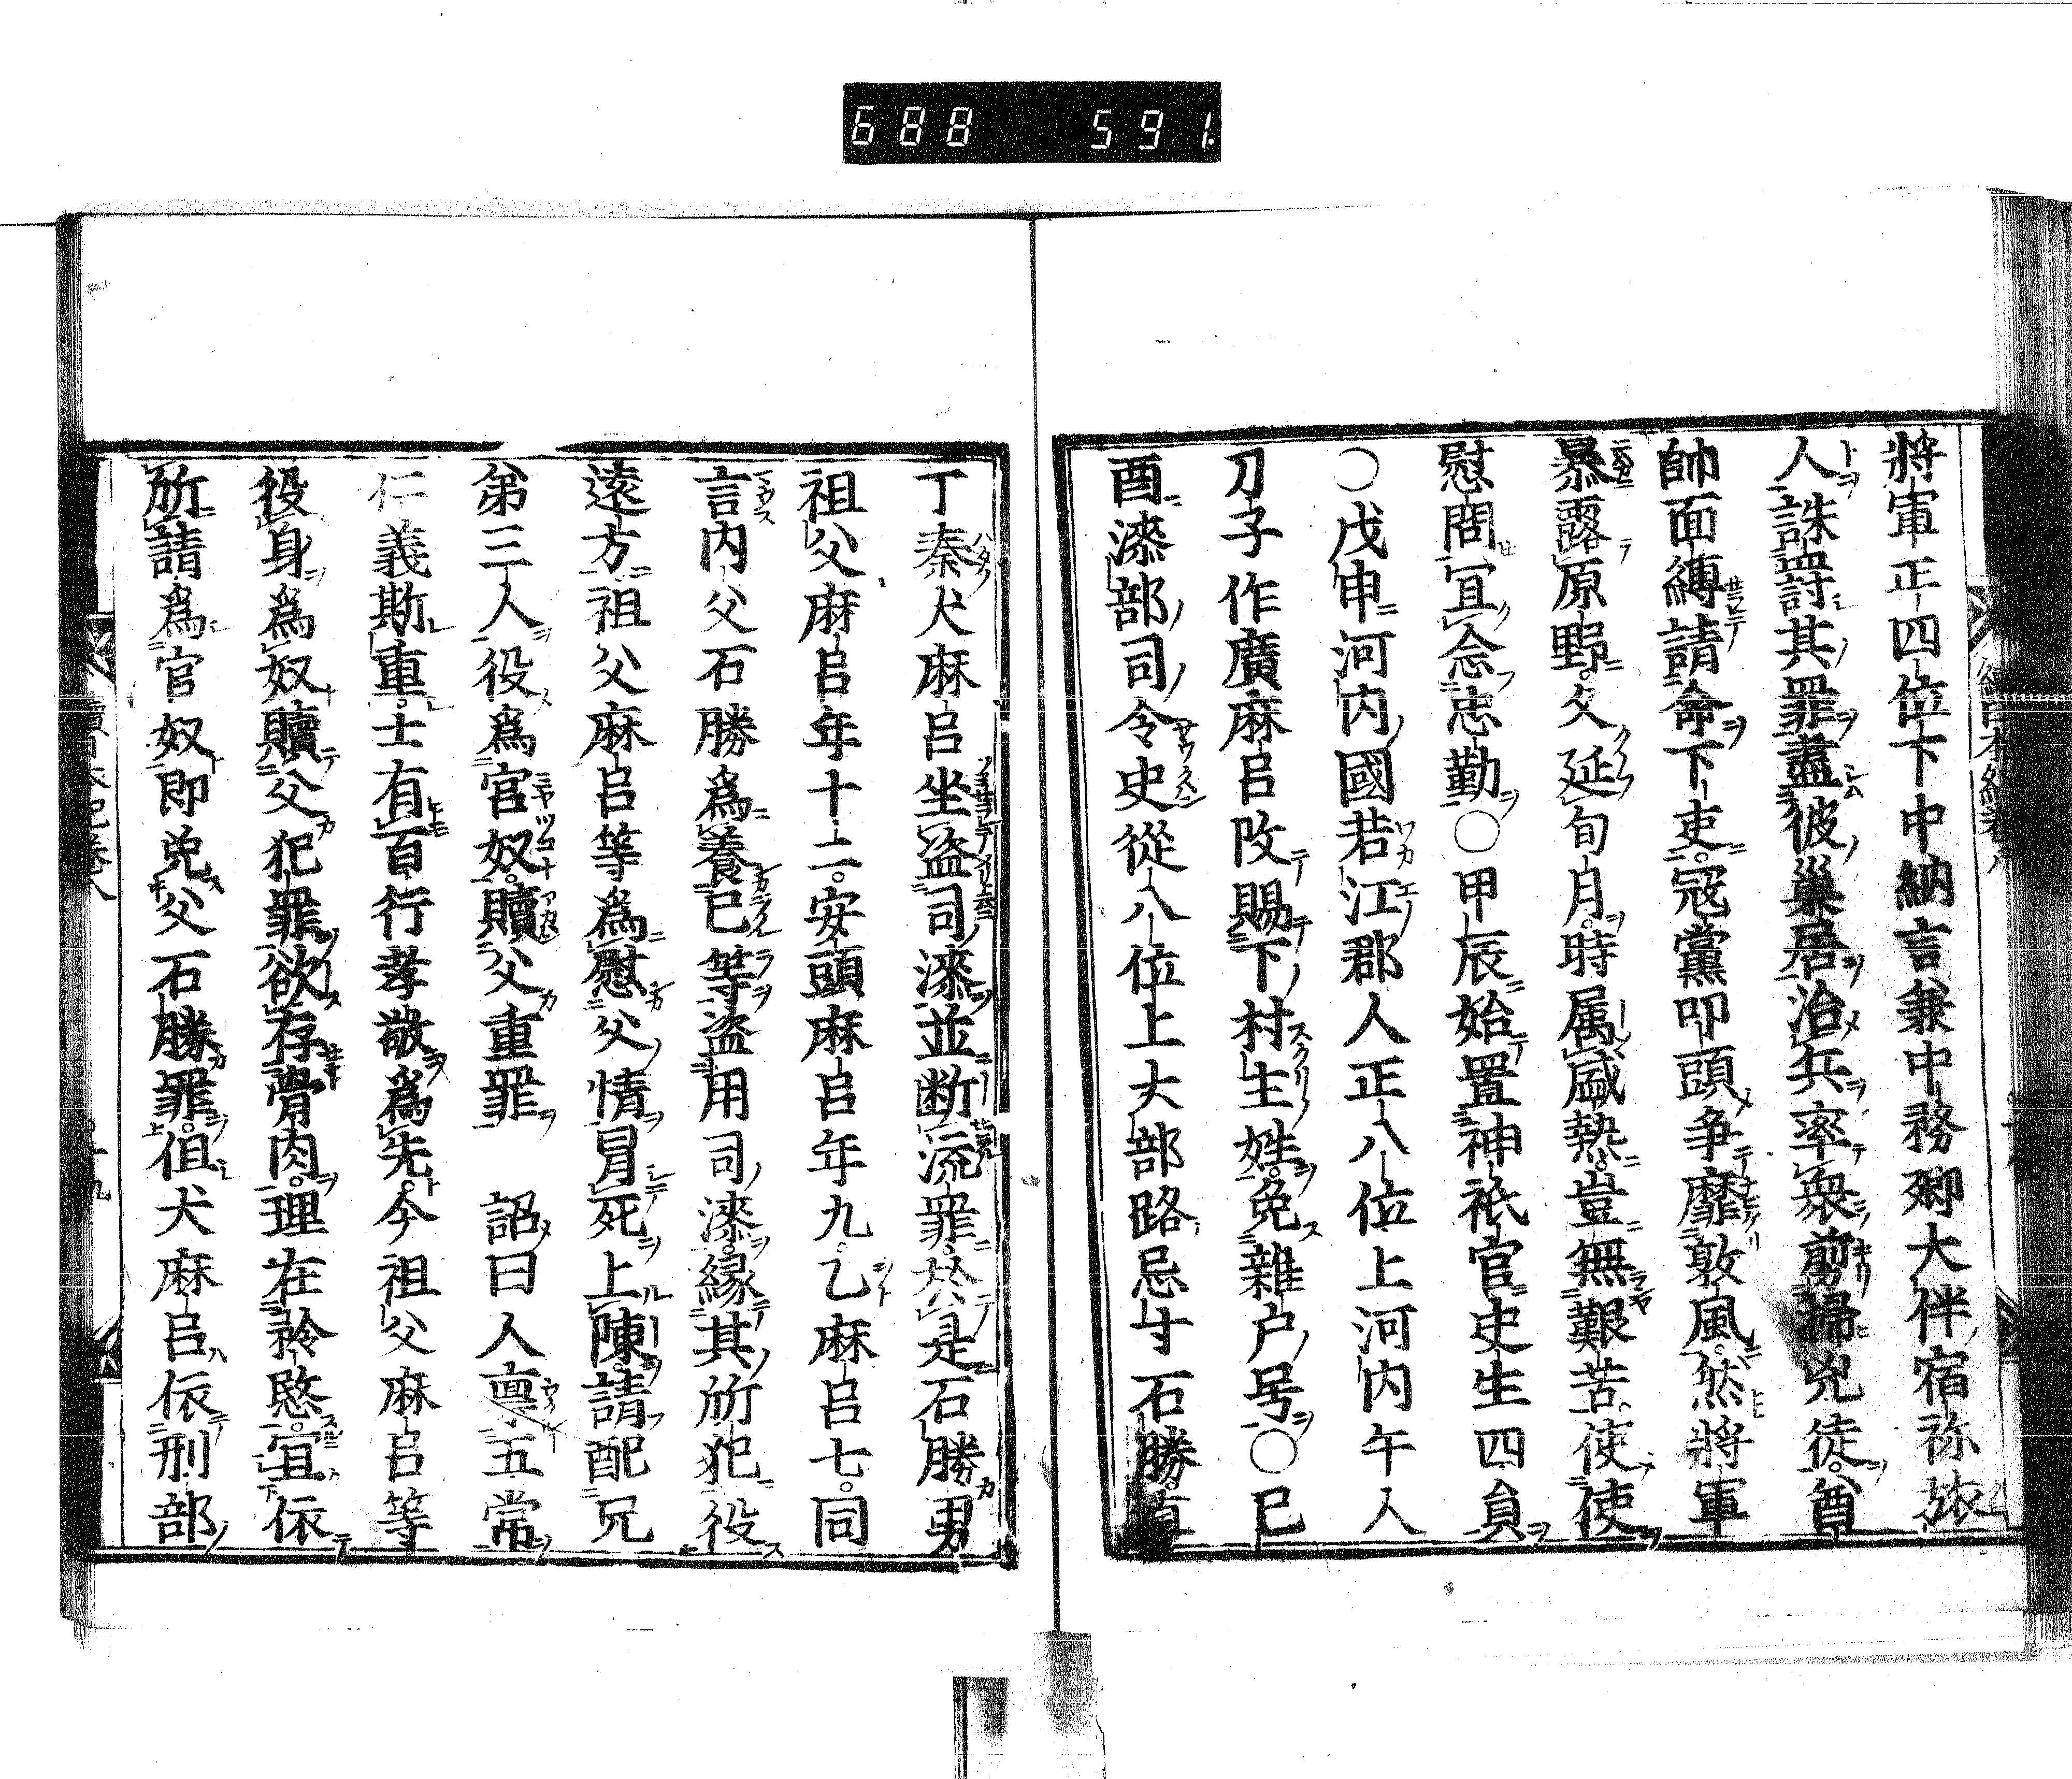 688 591
將軍正四位下中納言兼中務卿大伴宿祢旅
人誅罰其罪盡彼巢居治兵率衆剪掃兇徒酋
帥面縛請命下吏寇黨叩頭争靡敦風然將軍
暴露原野久延旬月時属盛熱豈無艱苦使使
慰問宜念忠勤○甲辰始置神祇官史生四員
○戊申河内國若江郡人正八位上河内午人
刀子作廣麻呂改賜下村主姓免雜户号○已
酉漆部司令史從八位上大部路忌寸石勝直
丁秦犬麻呂坐盗司漆並断流罪於是石勝男
祖父麻呂年十二安頭麻呂年九乙麻呂七同
言内父石勝為養已等盗用司漆縁其所犯役
遠方祖父麻呂等為慰父情冒死上陳請配兄
弟三人役為官奴贖父重罪 詔曰人禀五常
仁義斯重士有百行孝敬為先今祖父麻呂等
役身為奴贖父犯罪欲存骨肉理在矜愍宜依
所請為官奴即免父石勝罪但犬麻呂依刑部